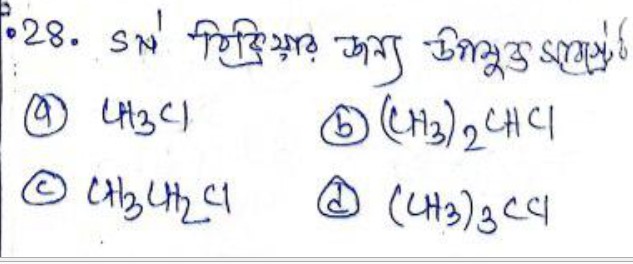 28. SN¹ বিক্রিয়ার জন্য উপযুক্ত
(a) CH3Cl (b) (CH3)2CHCl
(c) CH3CH2Cl (d) (CH3)3CCl